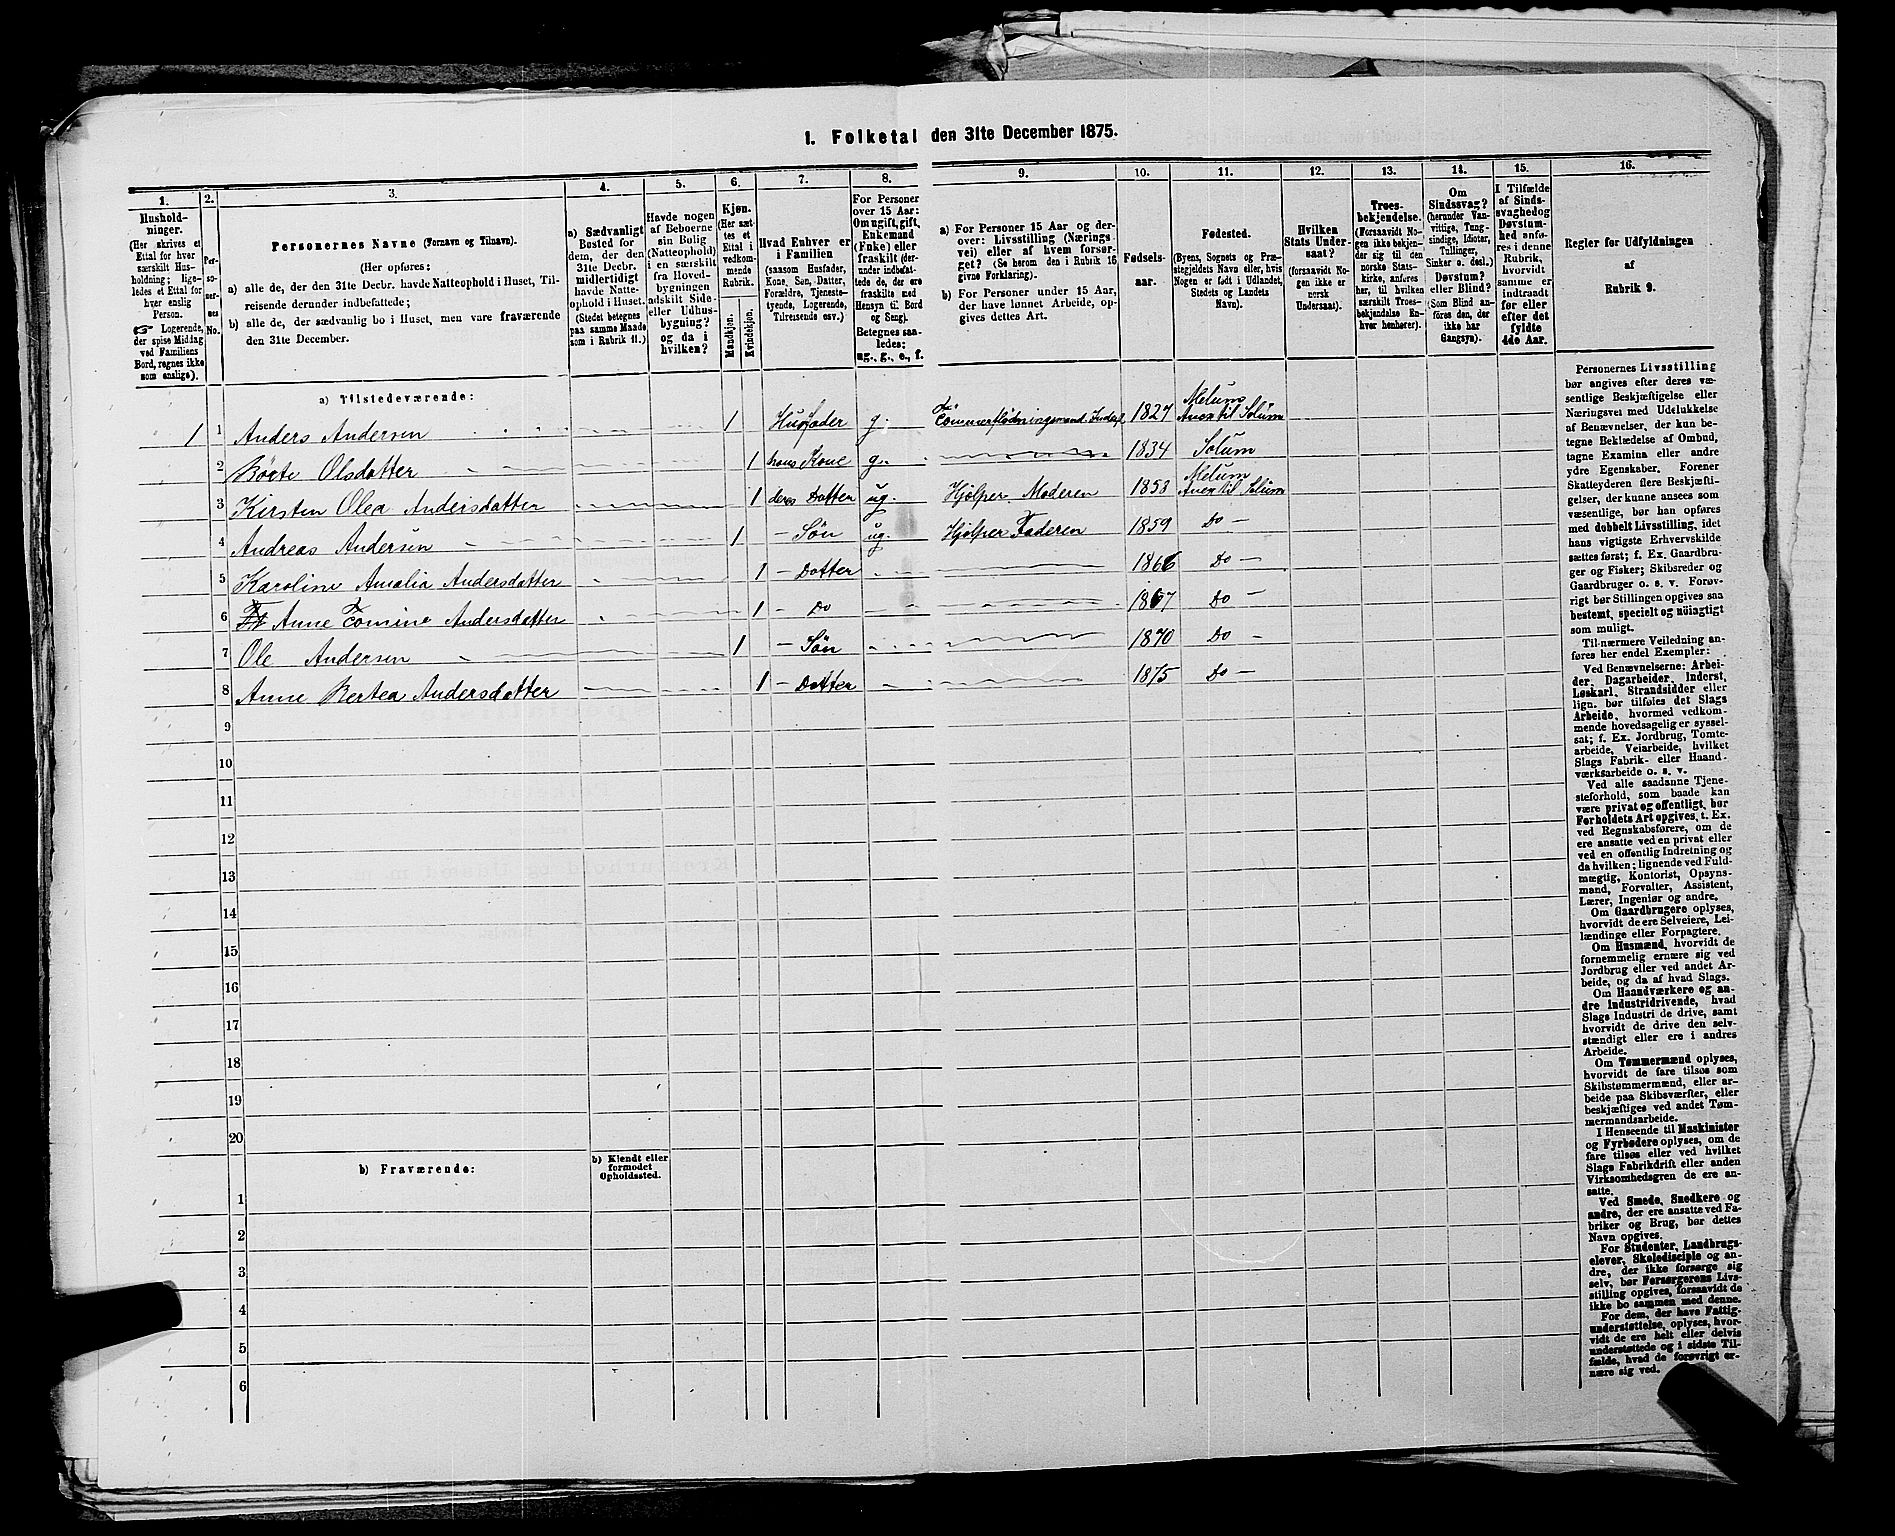 1. Folketal den 31te December 1875.
1.
Hushold-
ninger.
(Her skrives et
Ettal for hver
særskilt Hus-
holdning; lige-
ledes et Ettal for
hver enslig
Person.
☞ Logerende,
der spise Middag
ved Familiens
Bord, regnes ikke
som enslige).
2.
Per-
so-
ner-
nes
No.
3.
Personernes Navne (Fornavn og Tilnavn).
(Her opføres:
a) alle de, der den 31te Decbr. havde Natteophold i Huset, Til-
reisende derunder indbefattede;
b) alle de, der sædvanlig bo i Huset, men vare fraværende
den 31te December.
4.
a) Sædvanligt
Bosted for
dem, der den
31te Decbr.
midlertidigt
havde Natte-
ophold i Huset.
(Stedet betegnes
paa samme Maade
som i Rubrik 11.)
5.
Havde nogen
af Beboerne
sin Bolig
(Natteophold)
i en særskilt
fra Hoved-
bygningen
adskilt Side-
eller Udhus-
bygning?
og da i
hvilken?
6.
Kjøn.
(Her sæt-
tes et
Ettal i
vedkom-
mende
Rubrik.
Mandkjøn.
Kvindekjøn.
7.
Hvad Enhver er
i Familien
(saasom Husfader,
Kone, Søn, Datter,
Forældre, Tjeneste-
tyende, Logerende,
Tilreisende osv.)
8.
For Personer
over 15 Aar:
Om ugift, gift,
Enkemand
(Enke) eller
fraskilt (der-
under indbefat-
tede de, der ere
fraskilte med
Hensyn til Bord
og Seng).
Betegnes saa-
ledes:
ug., g., e., f.
9.
a) For Personer 15 Aar og der-
over: Livsstilling (Nærings-
vei) eller af hvem forsør-
get? (Se herom den i Rubrik 16
givne Forklaring).
b) For Personer under 15 Aar,
der have lønnet Arbeide, op-
gives dettes Art.
10.
Fødsels-
aar.
11.
Fødested.
(Byens, Sognets og Præ-
stegjeldets Navn eller, hvis
Nogen er født i Udlandet,
Stedets og Landets
Navn).
12.
Hvilken
Stats Under-
saat?
(forsaavidt No-
gen ikke er
norsk
Undersaat).
13.
Troes-
bekjendelse.
(Forsaavidt No-
gen ikke bekjen-
der sig til den
norske Stats-
kirke, anføres
her, til hvilken
særskilt Troes-
bekjendelse En-
hver henhører).
14.
Om
Sindssvag?
(herunder Van-
vittige, Tung-
sindige, Idioter,
Tullinger,
Sinker o. desl.)
Døvstum?
eller Blind?
(Som Blind an-
føres den, der
ikke har
Gangsyn).
15.
I Tilfælde
af Sinds-
svaghed og
Døvstum-
hed anfø-
res i denne
Rubrik,
hvorvidt
samme er
indtraadt
før eller
efter det
fyldte
4de Aar.
16.
Regler for Udfyldningen
af
Rubrik 9.
a) Tilstedeværende:
1 1 Anders Andersen 1 Husfader g. Tømmerflødningsmand. 1827 Melum Anex til Solum
2 Børte Olsdatter 1 hans Kone g. 1834 Solum
3 Kirsten Olea Andersdatter 1 deres Datter ug. Hjølper Moderen 1853 Melum Anex til Solum
4 Andreas Andersen 1 – Søn ug. Hjølper Faderen 1859 Do –
5 Karoline Amalia Andersdatter 1 – Datter 1866 Do –
6 Anne Tomine Andersdatter 1 – Do 1867 Do –
7 Ole Andersen 1 – Søn 1870 Do –
8 Anne Bertea Andersdatter 1 – Datter 1875 Do –
9
10
11
12
13
14
15
16
17
18
19
20
b) Fraværende:
b) Kjendt eller
formodet
Opholdssted.
1
2
3
4
5
6
Personernes Livsstilling
bør angives efter deres væ-
sentlige Beskjæftigelse eller
Næringsvei med Udelukkelse
af Benævnelser, der kun be-
tegne Beklædelse af Ombud,
tagne Examina eller andre
ydre Egenskaber. Forener
Skatteyderen flere Beskjæfti-
gelser, der kunne ansees som
væsentlige, bør han opføres
med dobbelt Livsstilling, idet
hans vigtigste Erhvervskilde
sættes først; f. Ex. Gaardbru-
ger og Fisker; Skibsreder og
Gaardbruger o. s. v. Forøv-
rigt bør Stillingen opgives saa
bestemt, specielt og nøiagtigt
som muligt.
Til nærmere Veiledning an-
føres her endel Exempler:
Ved Benævnelserne: Arbei-
der, Dagarbeider, Inderst,
Løskarl, Strandsidder eller
lign. bør tilføies det Slags
Arbeide, hvormed vedkom-
mende hovedsagelig er syssel-
sat; f. Ex. Jordbrug, Tomte-
arbeide, Veiarbeide, hvilket
Slags Fabrik- eller Haand-
værksarbeide o. s. v.
Ved alle saadanne Tjene-
steforhold, som baade kan
være privat og offentligt, bør
Forholdets Art opgives, t. Ex.
ved Regnskabsførere, om de
ere ansatte ved en privat eller
ved en offentlig Indretning og
da hvilken; lignende ved Fuld-
mægtig, Kontorist, Opsyns-
mand, Forvalter, Assistent,
Lærer, Ingeniør og andre.
Om Gaardbrugere oplyses,
hvorvidt de ere Selveiere, Lei-
lændinge eller Forpagtere.
Om Husmænd, hvorvidt de
fornemmelig ernære sig ved
Jordbrug eller ved andet Ar-
beide, og da af hvad Slags.
Om Haandværkere og an-
dre Industridrivende, hvad
Slags Industri de drive, samt
hvorvidt de drive den selv-
stændigt eller ere i andres
Arbeide.
Om Tømmermænd oplyses,
hvorvidt de fare tilsøs som
Skibstømmermænd, eller ar-
beide paa Skibsværfter, eller
beskjæftiges ved andet Tøm-
mermandsarbeide.
I Henseende til Maskinister
og Fyrbødere oplyses, om de
fare tilsøs eller ved hvilket
Slags Fabrikdrift eller anden
Virksomhedsgren de ere an-
satte.
Ved Smede, Snedkere og
andre, der ere ansatte ved Fa-
briker og Brug, bør dettes
Navn opgives.
For Studenter, Landbrugs-
elever, Skoledisciple og an-
dre, der ikke forsørge sig
selv, bør Forsørgerens Livs-
stilling opgives, forsaavidt de
ikke bo sammen med denne.
For dem, der have Fattig-
understøttelse, oplyses, hvor-
vidt de ere helt eller delvis
understøttede og i sidste Til-
fælde, hvad de forøvrigt er-
nære sig ved.